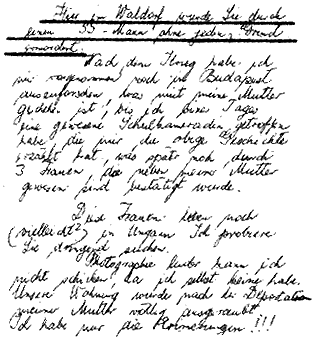 Hier im Waldorf wurde Sie durch
einen SS-Mann ohne jeden Grund
ermordert.
Nach dem Krieg habe ich
mir vorgenommen noch in Budapest
auszuforschen, was mit meine Mutter
geschehen ist, bis ich eines Tages
eine gewesene Schulkameradin getroffen
habe, die mir die obige Geschichte
erzählt hat, was spät noch durch
3 Frauen, die neben meine Mutter
gewesen sind bestätigt wurde.
Diese Frauen leben noch
(vielleicht?) in Ungarn Ich probiere
Sie dringend suchen.
Photographie leider kann ich
nicht schicken, da ich selbst keine habe.
Unsere Wohnung wurde nach der Deportation
meiner Mutter völlig ausgeraubt.
Ich habe nur die Erinnerungen!!!